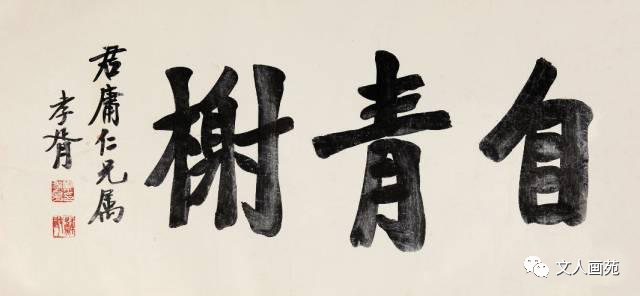 自青榭
君庸仁兄属
孝胥
文人画苑